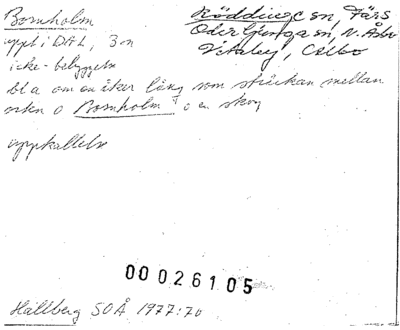 Bornholm
Röddinge sn, Färs
Oderljunga sn, N. Åsbo
Vitaby, Albo
uppt i DAL, 3 n
icke-bebyggelse
bl a om en åker lång som sträckan mellan
orten o Bornholm i en skog
uppkallelse
00026105
Hallberg SOÅ 1977:70